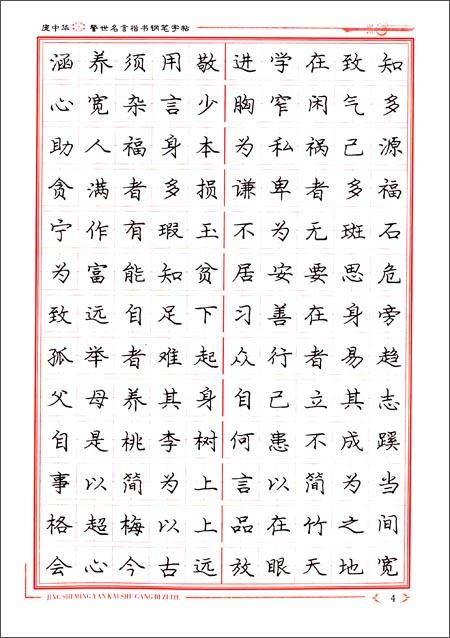 庞中华 警世名言楷书钢笔字帖
涵养须用敬 进学在致知
心宽杂言少 胸窄闲气多
助人福身本 为私祸己源
贪满者多损 谦卑者多福
宁作有瑕玉 不为无斑石
为富能知贫 居安要思危
致远自足下 习善在身旁
孤举者难起 众行者易趋
父母养其身 自己立其志
自是桃李树 何患不成蹊
事以简为上 言以简为当
格超梅以上 品在竹之间
会心今古远 放眼天地宽
JING SHI MING YAN KAI SHU GANG BI ZI TIE
4